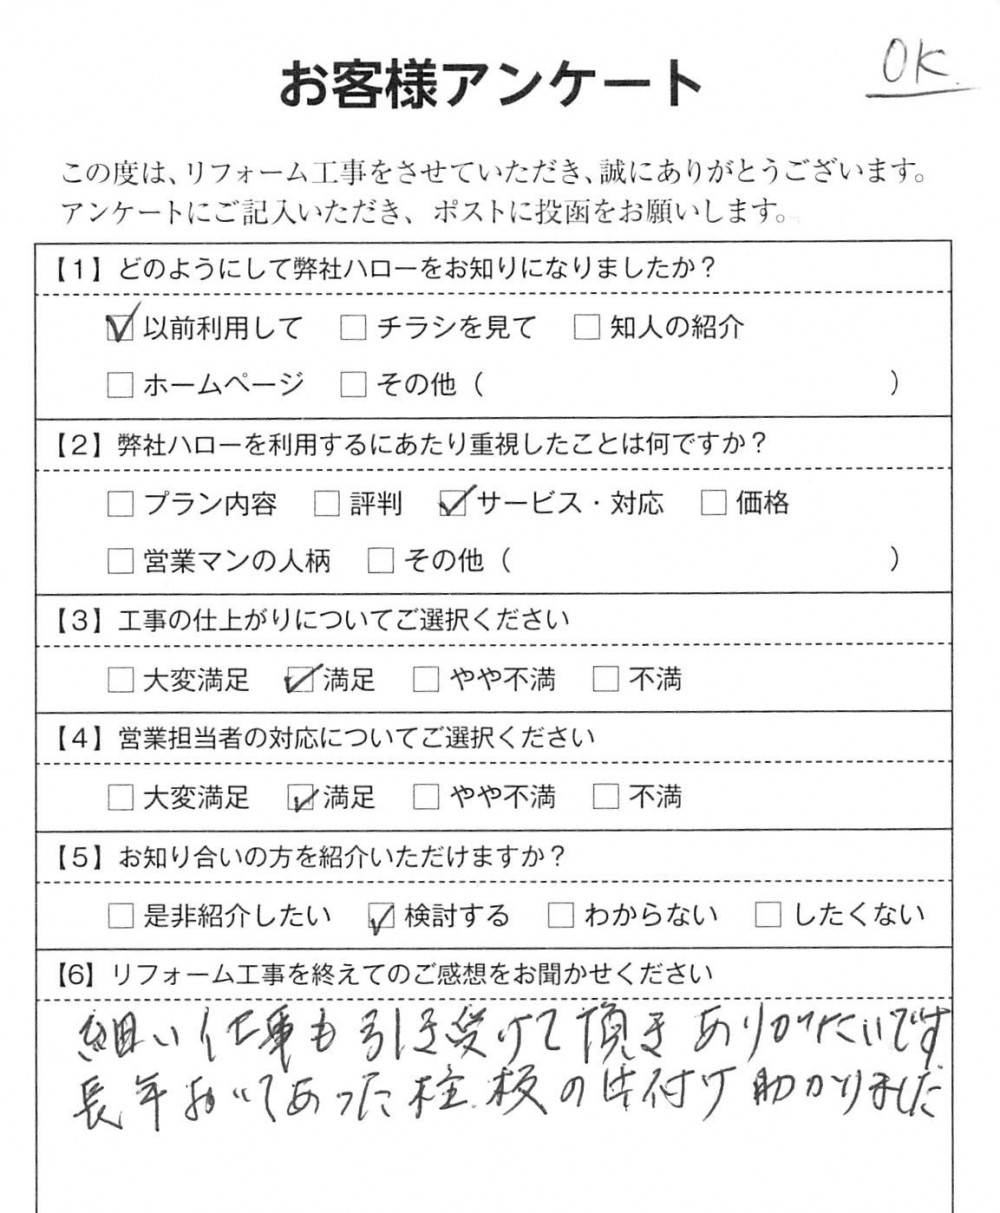 OK
お客様アンケート
この度は、リフォーム工事をさせていただき、誠にありがとうございます。
アンケートにご記入いただき、ポストに投函をお願いします。
【1】どのようにして弊社ハローをお知りになりましたか？
☑以前利用して □チラシを見て □知人の紹介
□ホームページ □その他（ ）
【2】弊社ハローを利用するにあたり重視したことは何ですか？
□プラン内容 □評判 ☑サービス・対応 □価格
□営業マンの人柄 □その他（ ）
【3】工事の仕上がりについてご選択ください
□大変満足 ☑満足 □やや不満 □不満
【4】営業担当者の対応についてご選択ください
□大変満足 ☑満足 □やや不満 □不満
【5】お知り合いの方を紹介いただけますか？
□是非紹介したい ☑検討する □わからない □したくない
【6】リフォーム工事を終えてのご感想をお聞かせください
細い仕事も引き受けて頂き ありがたいです
長年おいてあった柱.板の片付け助かりました